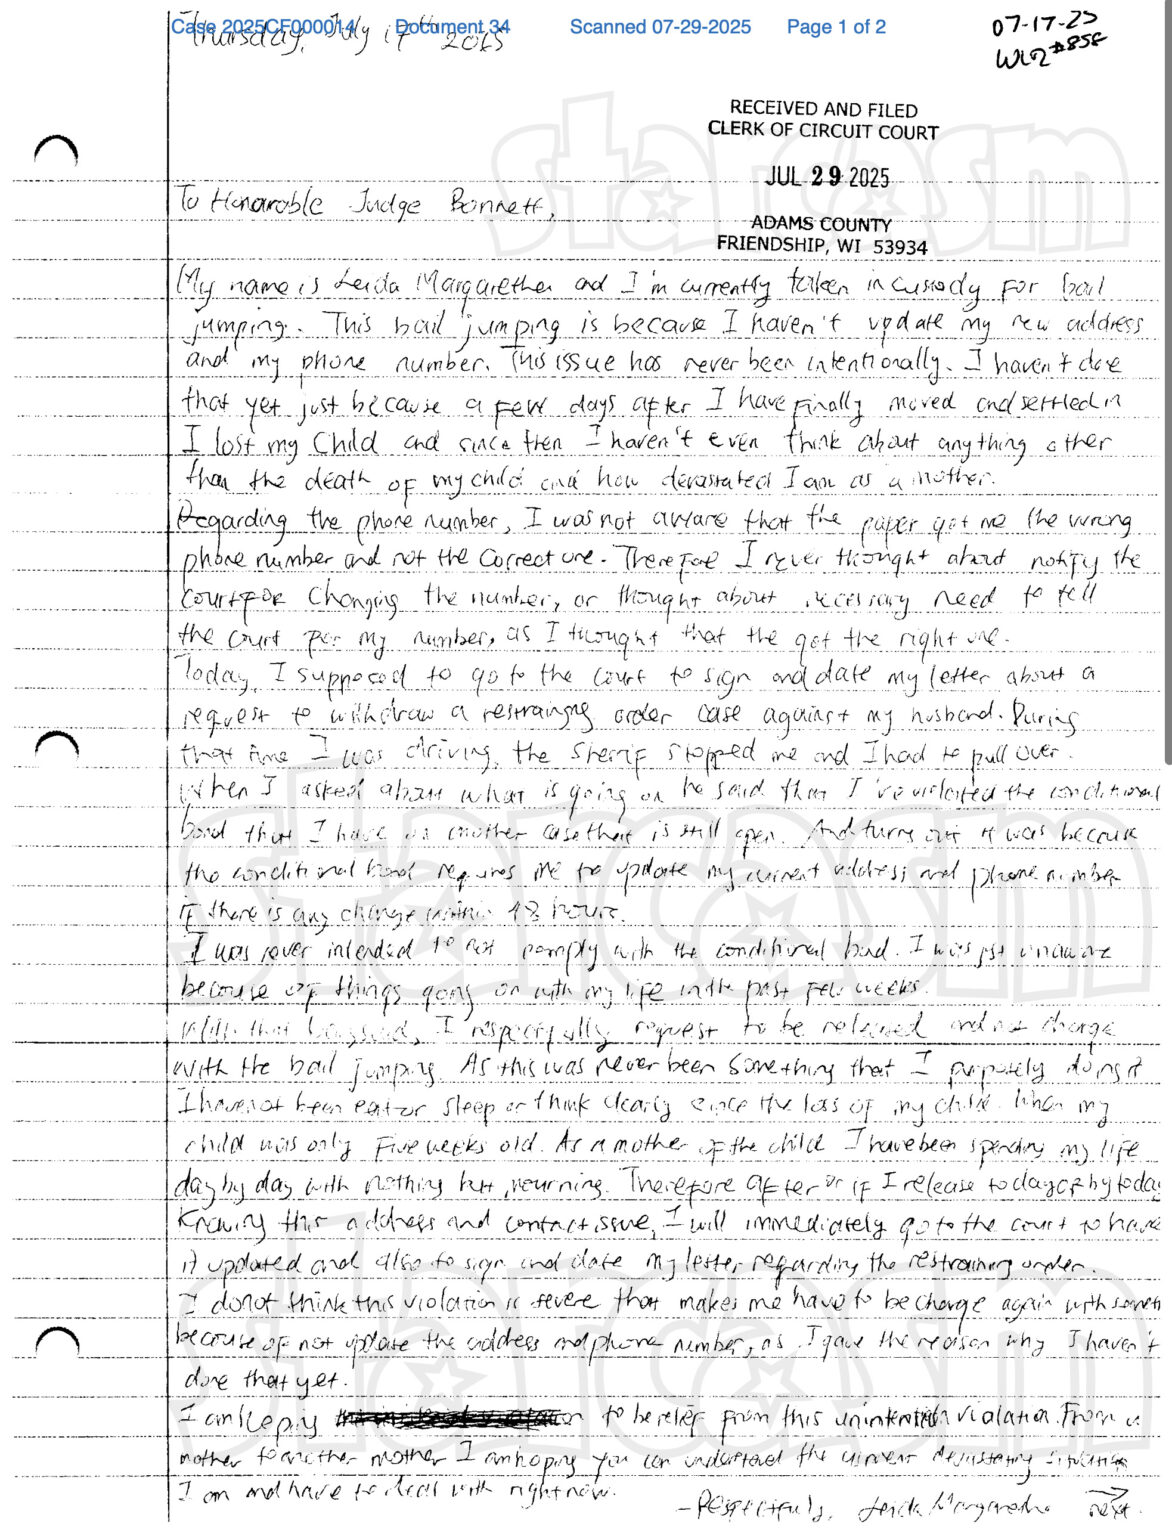 Case 2025CF000014 Document 34 Scanned 07-29-2025 Page 1 of 2
Thursday, July 17th 2025
07-17-25
WLR #858
RECEIVED AND FILED
CLERK OF CIRCUIT COURT
JUL 29 2025
ADAMS COUNTY
FRIENDSHIP, WI 53934
starcasm
To Honarable Judge Bonnett,
My name is Leida Margaretha and I'm currently taken in custody for bail
jumping. This bail jumping is because I haven't update my new address
and my phone number. This issue has never been intentionally. I haven't done
that yet just because a few days after I have finally moved and settled in
I lost my child and since then I haven't even think about anything other
than the death of my child and how devastated I am as a mother.
Regarding the phone number, I was not aware that the paper got me the wrong
phone number and not the correct one. Therefore I never thought about notify the
court for changing the number, or thought about necessary need to tell
the court per my number, as I thought that the got the right one.
Today, I supposed to go to the court to sign and date my letter about a
request to withdraw a restraining order case against my husband. During
that time I was driving, the sherrif stopped me and I had to pull over.
When I asked about what is going on he said that I've violated the conditional
bond that I have on another case that is still open. And turns out it was because
the conditional bond requires me to update my current address and phone number
if there is any change within 48 hours.
I was never intended to not comply with the conditional bond. I was just unaware
because of things going on with my life in the past few weeks.
With that being said, I respectfully request to be released and not charge
with the bail jumping. As this was never been something that I purposely doing it
I have not been eat or sleep or think clearly since the loss of my child. When my
child was only five weeks old. As a mother of the child I have been spending my life
day by day with nothing but mourning. Therefore after or if I release today by today
Knowing this address and contact issue, I will immediately go to the court to have
it updated and also to sign and date my letter regarding the restraining order.
I do not think this violation is severe that makes me have to be charge again with
because of not update the address and phone number, as I gave the reason why I haven't
done that yet.
I am to be relief from this unintention violation. From a
mother to another mother I am hoping you can understand the current devastating situation
I am and have to deal with right now.
- Respectfully, Leida Margaretha next
starcasm
starcasm